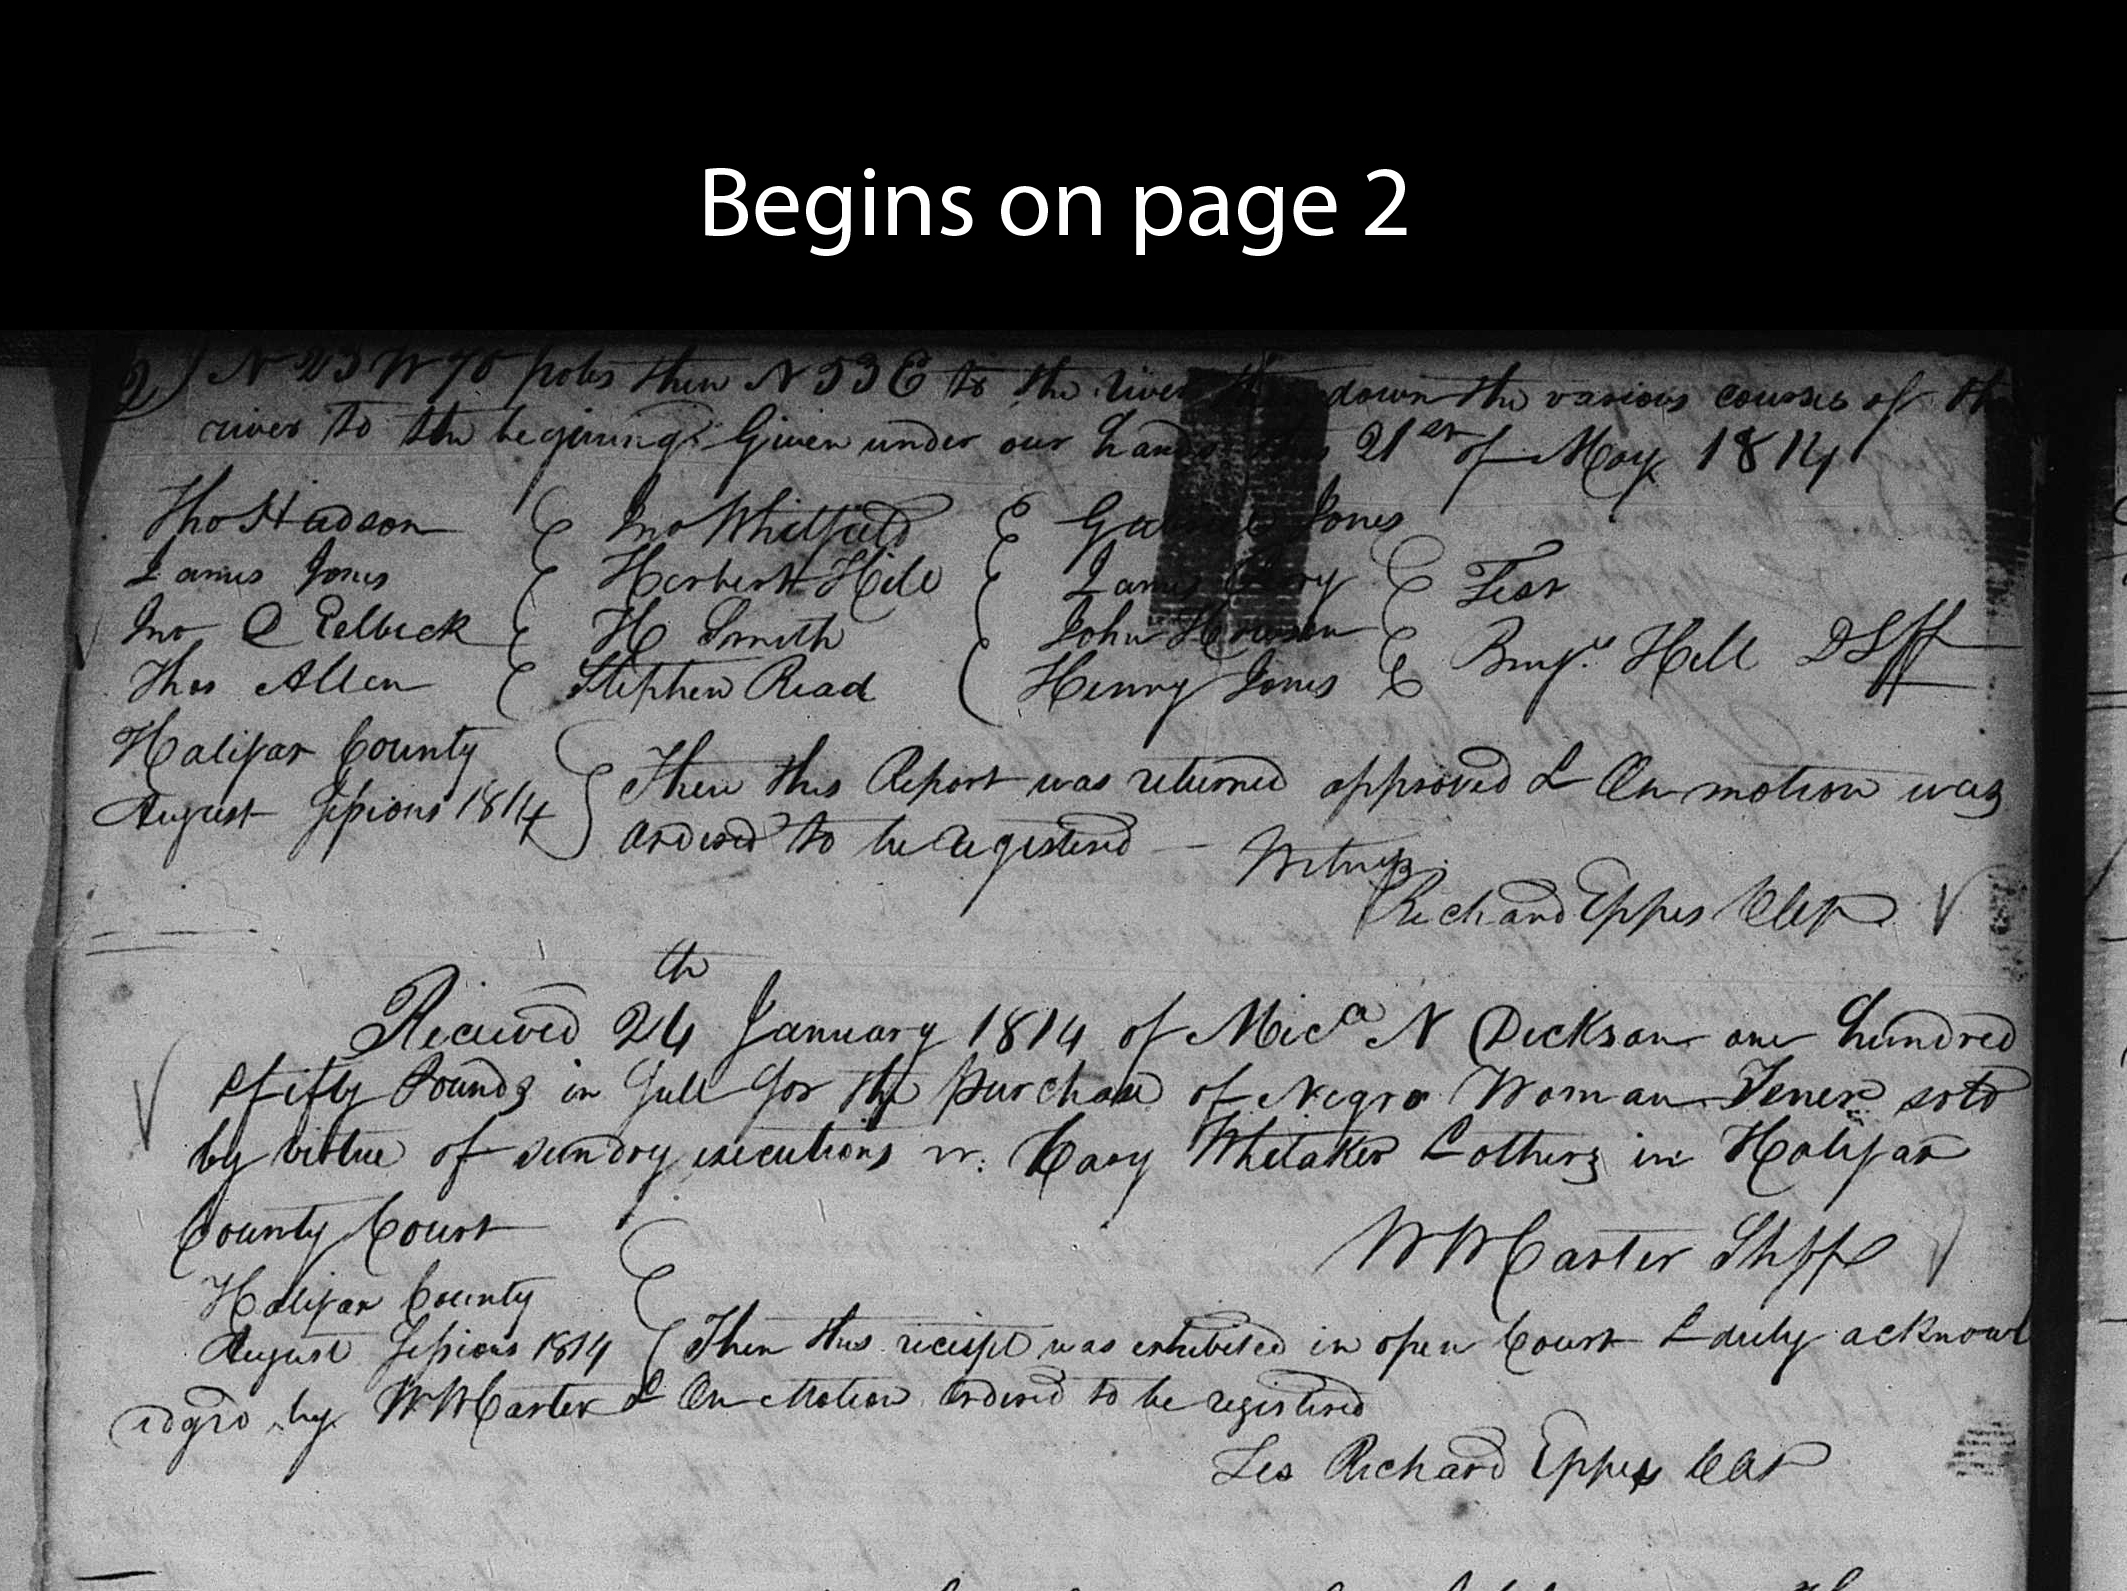 Begins on page 2
2) N 23 W 70 poles then N 53 E to the river down the various courses of the
river to the begining. Given under our hands this 21st of May 1814
Tho Hudson Jno Whitfield Gabriel Jones
James Jones Herbert Hill James Test
Jno Q Pelbeck H Smith John Howson
Thos Allen Stephen Read Henry Jones Benj. Hill DShff
Halifax County
August Sessions 1814 Then this Report was returned approved & On motion was
ordered to be registered — Witness
Richard Eppes Clk
th
Received 24 January 1814 of Mica N Dickson one hundred
& fifty Pounds in full for the purchase of Negro Woman Tener sold
by virtue of sundry executions vs. Cary Whitaker & others in Halifax
County Court
W W Carter Shff
Halifax County
August Sessions 1814 Then this receipt was exhibited in open Court & duly acknowl
edged by W W Carter & On Motion ordered to be registered
Tes Richard Eppes Clk